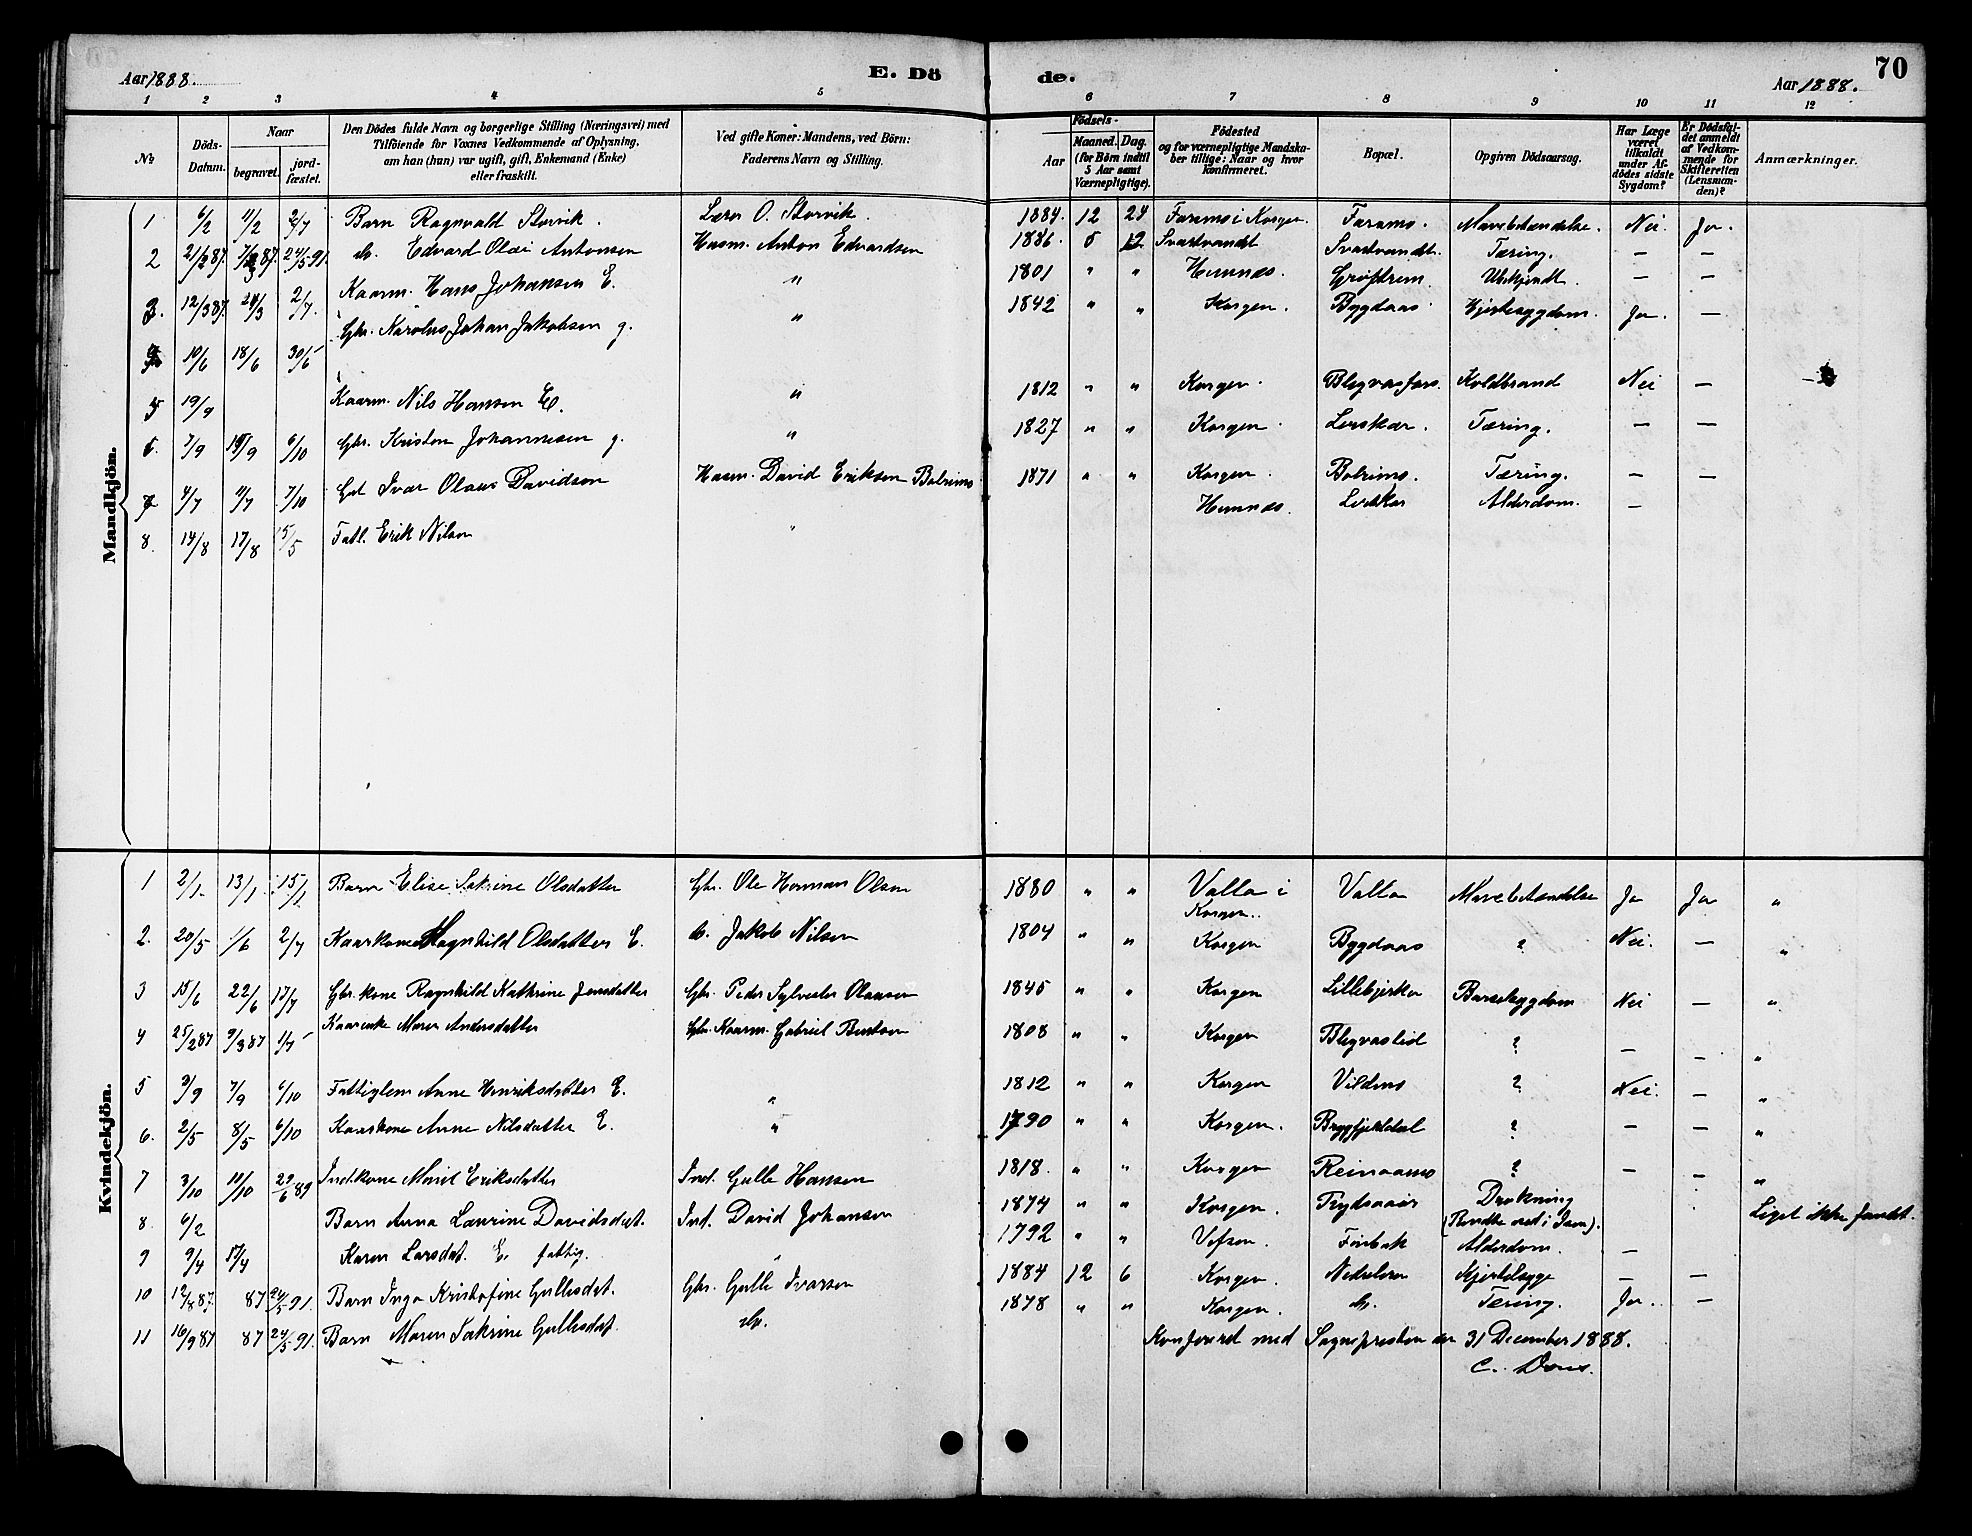 Aar 1888.
E. Dö
de.
Aar 1888.
70
1 2 3 4 5 6 7 8 9 10 11 12
№
Döds-Datum.
Naar
begravet.
jord-fæstet.
Den Dödes fulde Navn og borgerlige Stilling (Næringsvei) med
Tilföiende for Voxnes Vedkommende af Oplysning,
om han (hun) var ugift, gift, Enkemand (Enke)
eller fraskilt.
Ved gifte Koner: Mandens, ved Börn:
Faderens Navn og Stilling.
Födsels-
Aar
Maaned. Dag.
(for Börn indtil
5 Aar samt
Værnepligtige).
Födested
og for værnepligtige Mandska-
ber tillige: Naar og hvor
konfirmeret.
Bopæl.
Opgiven Dödsaarsag.
Har Læge
været
tilkaldt
under Af-
dödes sidste
Sygdom?
Er Dödsfal-
det anmeldt
af Vedkom-
mende for
Skifteretten
(Lensman-
den)?
Anmærkninger.
Mandkjön.
1 6/2 11/2 2/7 Barn Ragnvald Storvik. Lærer O. Storvik. 1884. 12 24 Faramo i Korgen Faramo. Mavebetændelse. Nei. Ja.
2 87. 87. 24/5 91. do. Edvard Olai Antonsen Husm. Anton Edvardsen 1886. 5 12 Svartvandt Svartvandt. Tæring. — —
3. 12/3 87. 24/3 2/7. Kaarm. Hans Johansen E. " 1801 " " Hemnæs. Ubekjendt. — —
10/6 18/6 30/5 Gbr. Karolus Johan Jakobsen g. " 1842 " " Korgen. Bygdaas Hjertesygdom. Ja. —
5 19/9 Kaarm. Nils Hansen E. " 1812 " " Korgen. Koldbrand Nei —
6. 7/9 9 6/10 Gbr. Kristen Johannesen g. " 1827 " " Korgen. Lerskar. Tæring. — —
7 4/7 11/7 7/10 Ivar Olaus Davidsen Husm. David Eriksen Bolrimo 1871 " " Korgen. Bolrimo. Tæring. — —
8. 14/8 17/8 15/5 Fatl. Erik Nilsen " Hemnæs. Alderdom. —
Kvindekjön.
1 2/1. 13/1. 15/1 Barn Elise Sakrine Olsdatter Gbr. Ole Herman Olsen 1880 " " Valla i Korgen.. Valla Mavebetændelse Ja Ja "
2. 20/5 1/6 2/7 Kaarkone Magnhild Olsdatter E. do. Jakob Nilsen 1804 " " Korgen Bygdaas ? Nei. — "
3 15/6 22/6 17/7 Gbr. kone Ragnhild Kathrine Jensdatter Gbr. Peder Sylvester Olausen 1845 " " Korgen Lillebjerka Barselsygdom Nei — "
4 25/2 87 9/3 87 1/7 Kaarenke Maren Andersdatter Gbr. Kaarm. Gabriel 1808 " " Korgen Blegvaslid ? — — "
5 3/9 7/9 6/10 Fattiglem Anne Henriksdatter E. " 1812 " " Korgen ? Nei. — "
6. 2/5 8/5 6/10 Kaarkone Anne Nilsdatter E. " 1790 " " Korgen. Bryggfjelddal ? — — "
7 3/10 10/10 29/6 89 Ind.kone Marit Eriksdatter Ind. Gulle Hansen 1818. " " Korgen Reinaamo ? — — "
8. 6/2 Barn Anna Laurine Davidsdat. Ind. David Johansen 1874 " " Korgen. Drukning (Rendte ned i Isen). Liget ikke fundet.
9 9/4 17/4 Karen Larsdat. E. fattig. " 1792 " " Vefsen. Finbak Alderdom. —
10 12/8 87. 87 24/5 91. Barn Inga Kristofine Gullesdat. Gbr. Gulle Ivarsen 1884 12 6 Korgen. Nedreleren — —
11 10/9 87 87 24/5 91. Barn Maren Sakrine Gullesdat. do. 1878 " " Korgen. do. Tæring. Ja. —
Konfereret med Sognepresten den 31 December 1888.
C. Dons.